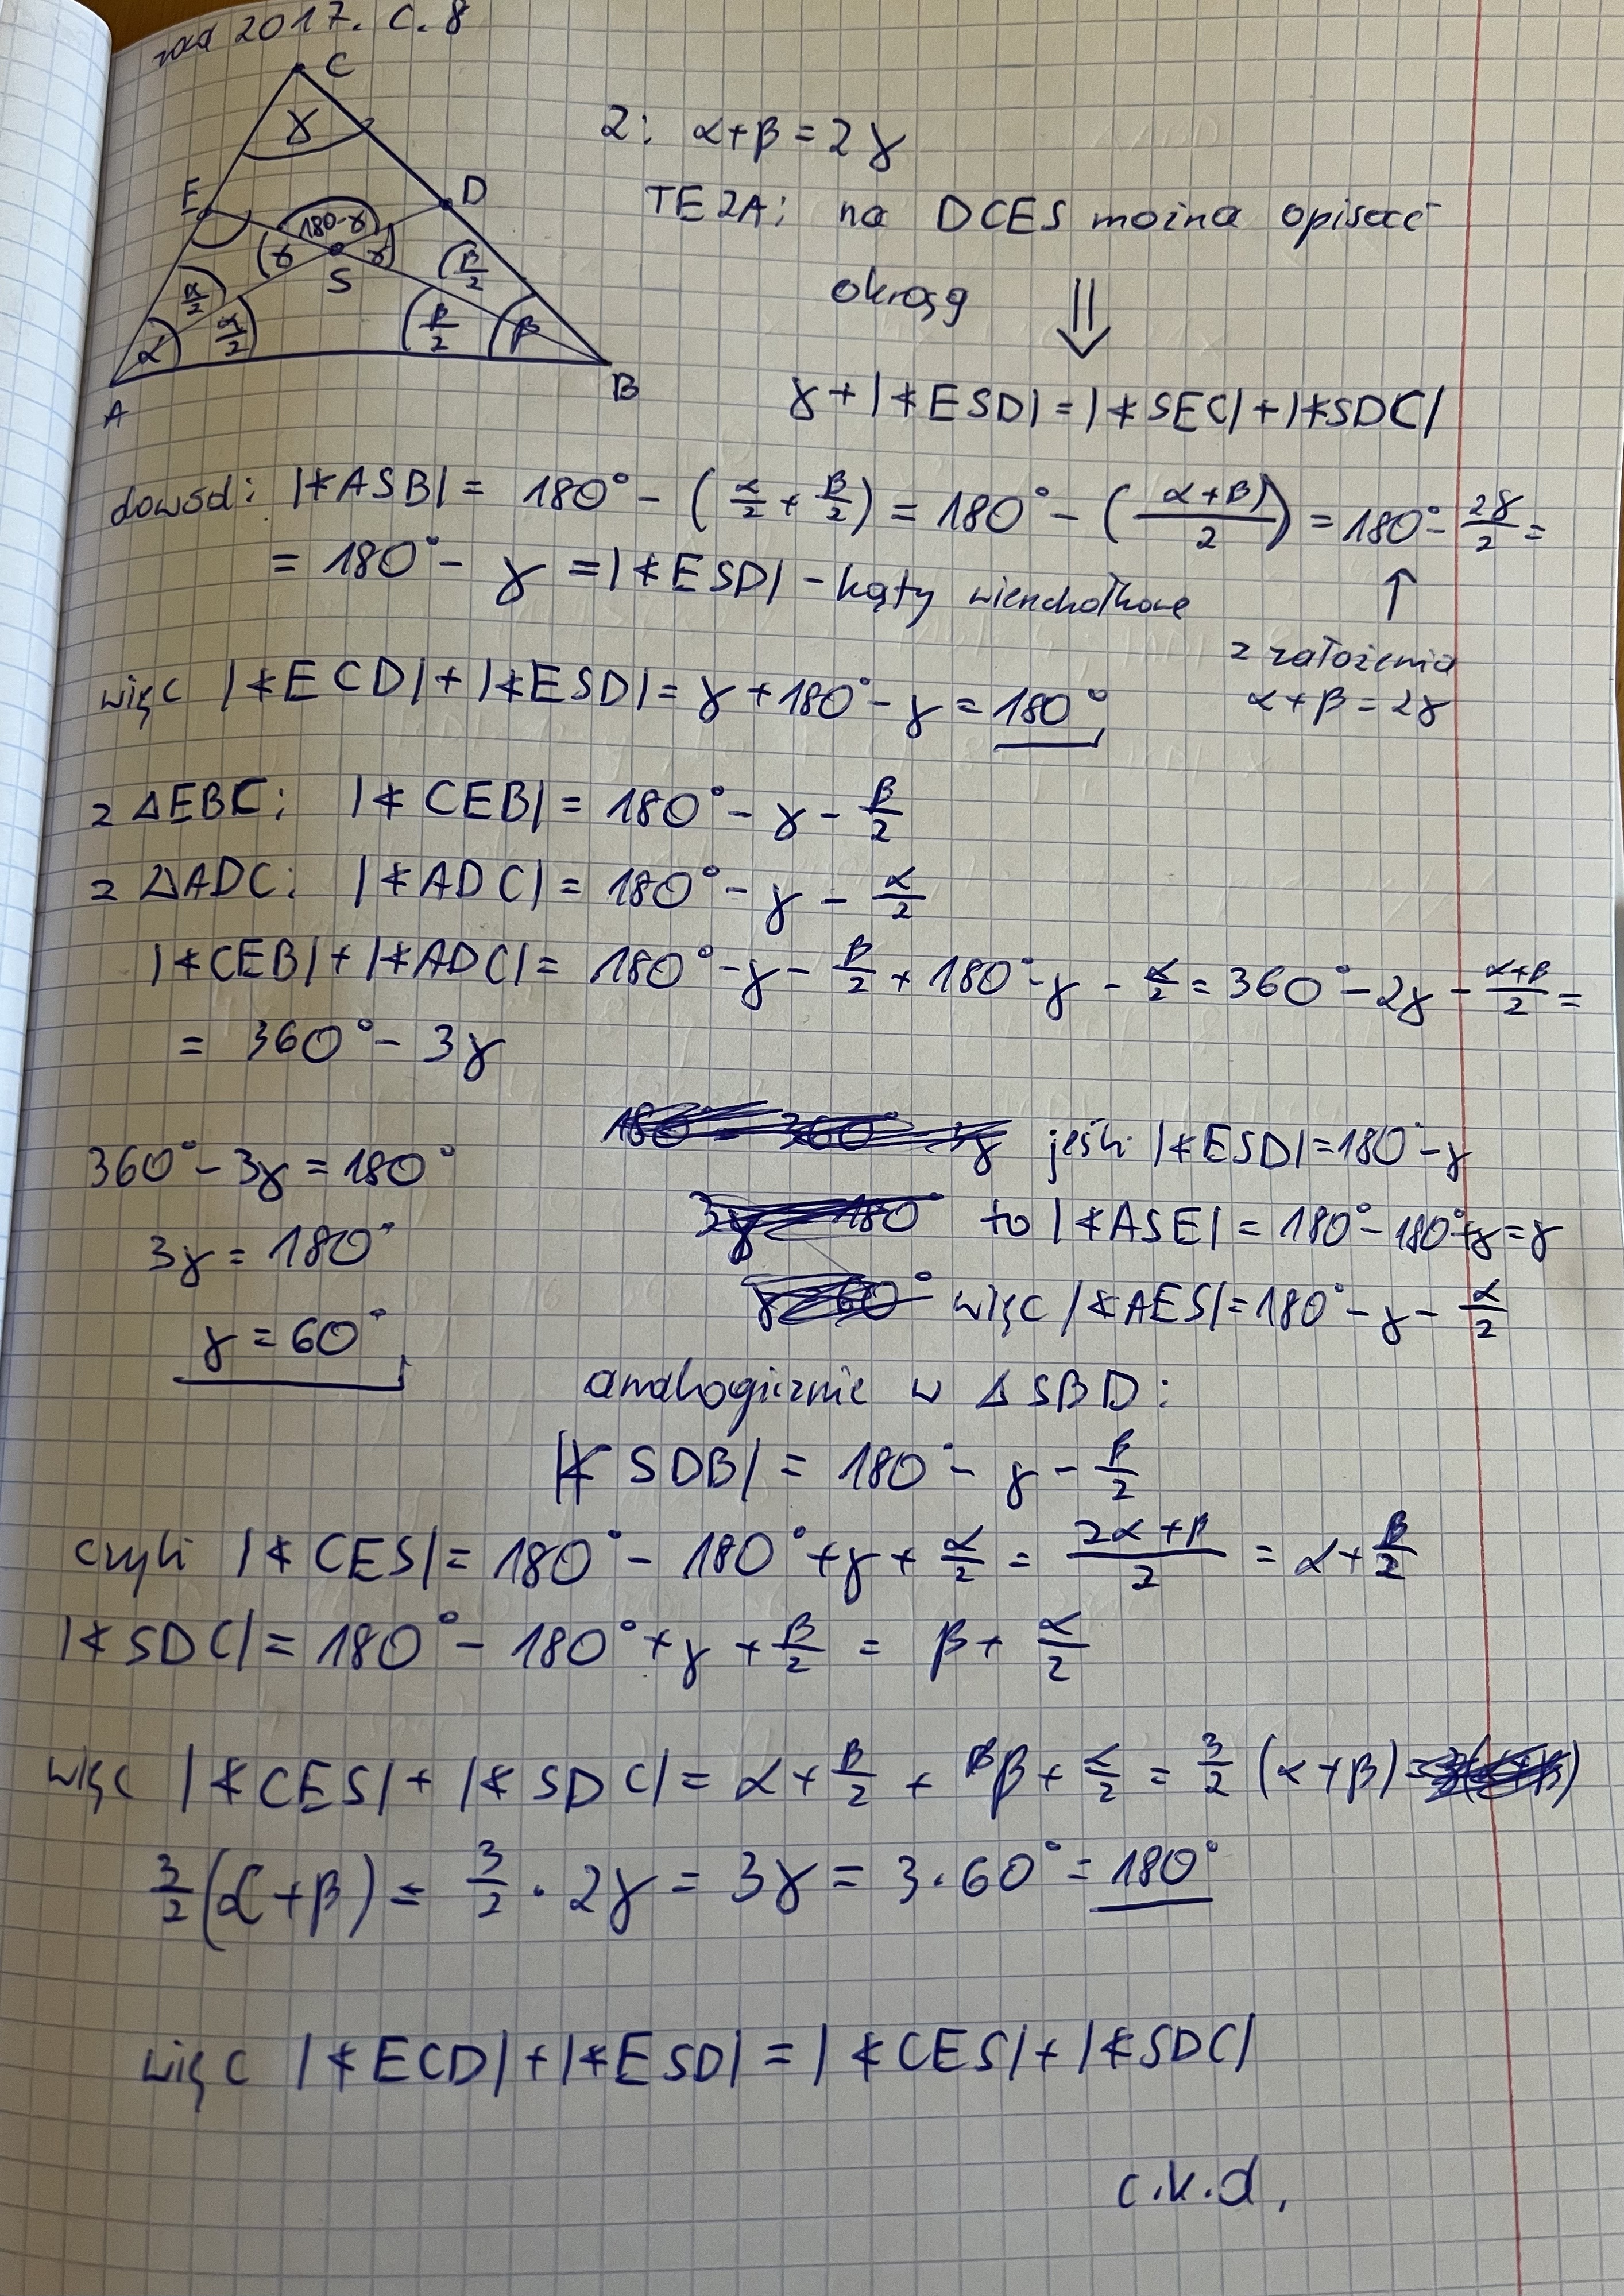 zad 2017. c. 8
C
γ
E
D
180-γ
γ
γ
S
β/2
α/2
α/2
α
β/2
β
A
B
Z: α+β = 2γ
TEZA: na DCES można opisać
okrąg ⇓
γ + |∢ESD| = |∢SEC| + |∢SDC|
dowód: |∢ASB| = 180° - (α/2 + β/2) = 180° - ((α+β)/2) = 180° - 2γ/2 =
= 180° - γ = |∢ESD| - kąty wierzchołkowe ↑
z założenia
α+β = 2γ
więc |∢ECD| + |∢ESD| = γ + 180° - γ = 180°
z △EBC: |∢CEB| = 180° - γ - β/2
z △ADC: |∢ADC| = 180° - γ - α/2
|∢CEB| + |∢ADC| = 180° - γ - β/2 + 180° - γ - α/2 = 360° - 2γ - (α+β)/2 =
= 360° - 3γ
360° - 3γ = 180°
3γ = 180°
γ = 60°
jeśli |∢ESD| = 180° - γ
to |∢ASE| = 180° - 180° + γ = γ
więc |∢AES| = 180° - γ - α/2
analogicznie w △SBD:
|∢SDB| = 180° - γ - β/2
czyli |∢CES| = 180° - 180° + γ + α/2 = (2α+β)/2 = α + β/2
|∢SDC| = 180° - 180° + γ + β/2 = β + α/2
więc |∢CES| + |∢SDC| = α + β/2 + β + α/2 = 3/2 (α+β)
3/2 (α+β) = 3/2 · 2γ = 3γ = 3·60° = 180°
więc |∢ECD| + |∢ESD| = |∢CES| + |∢SDC|
c.k.d.